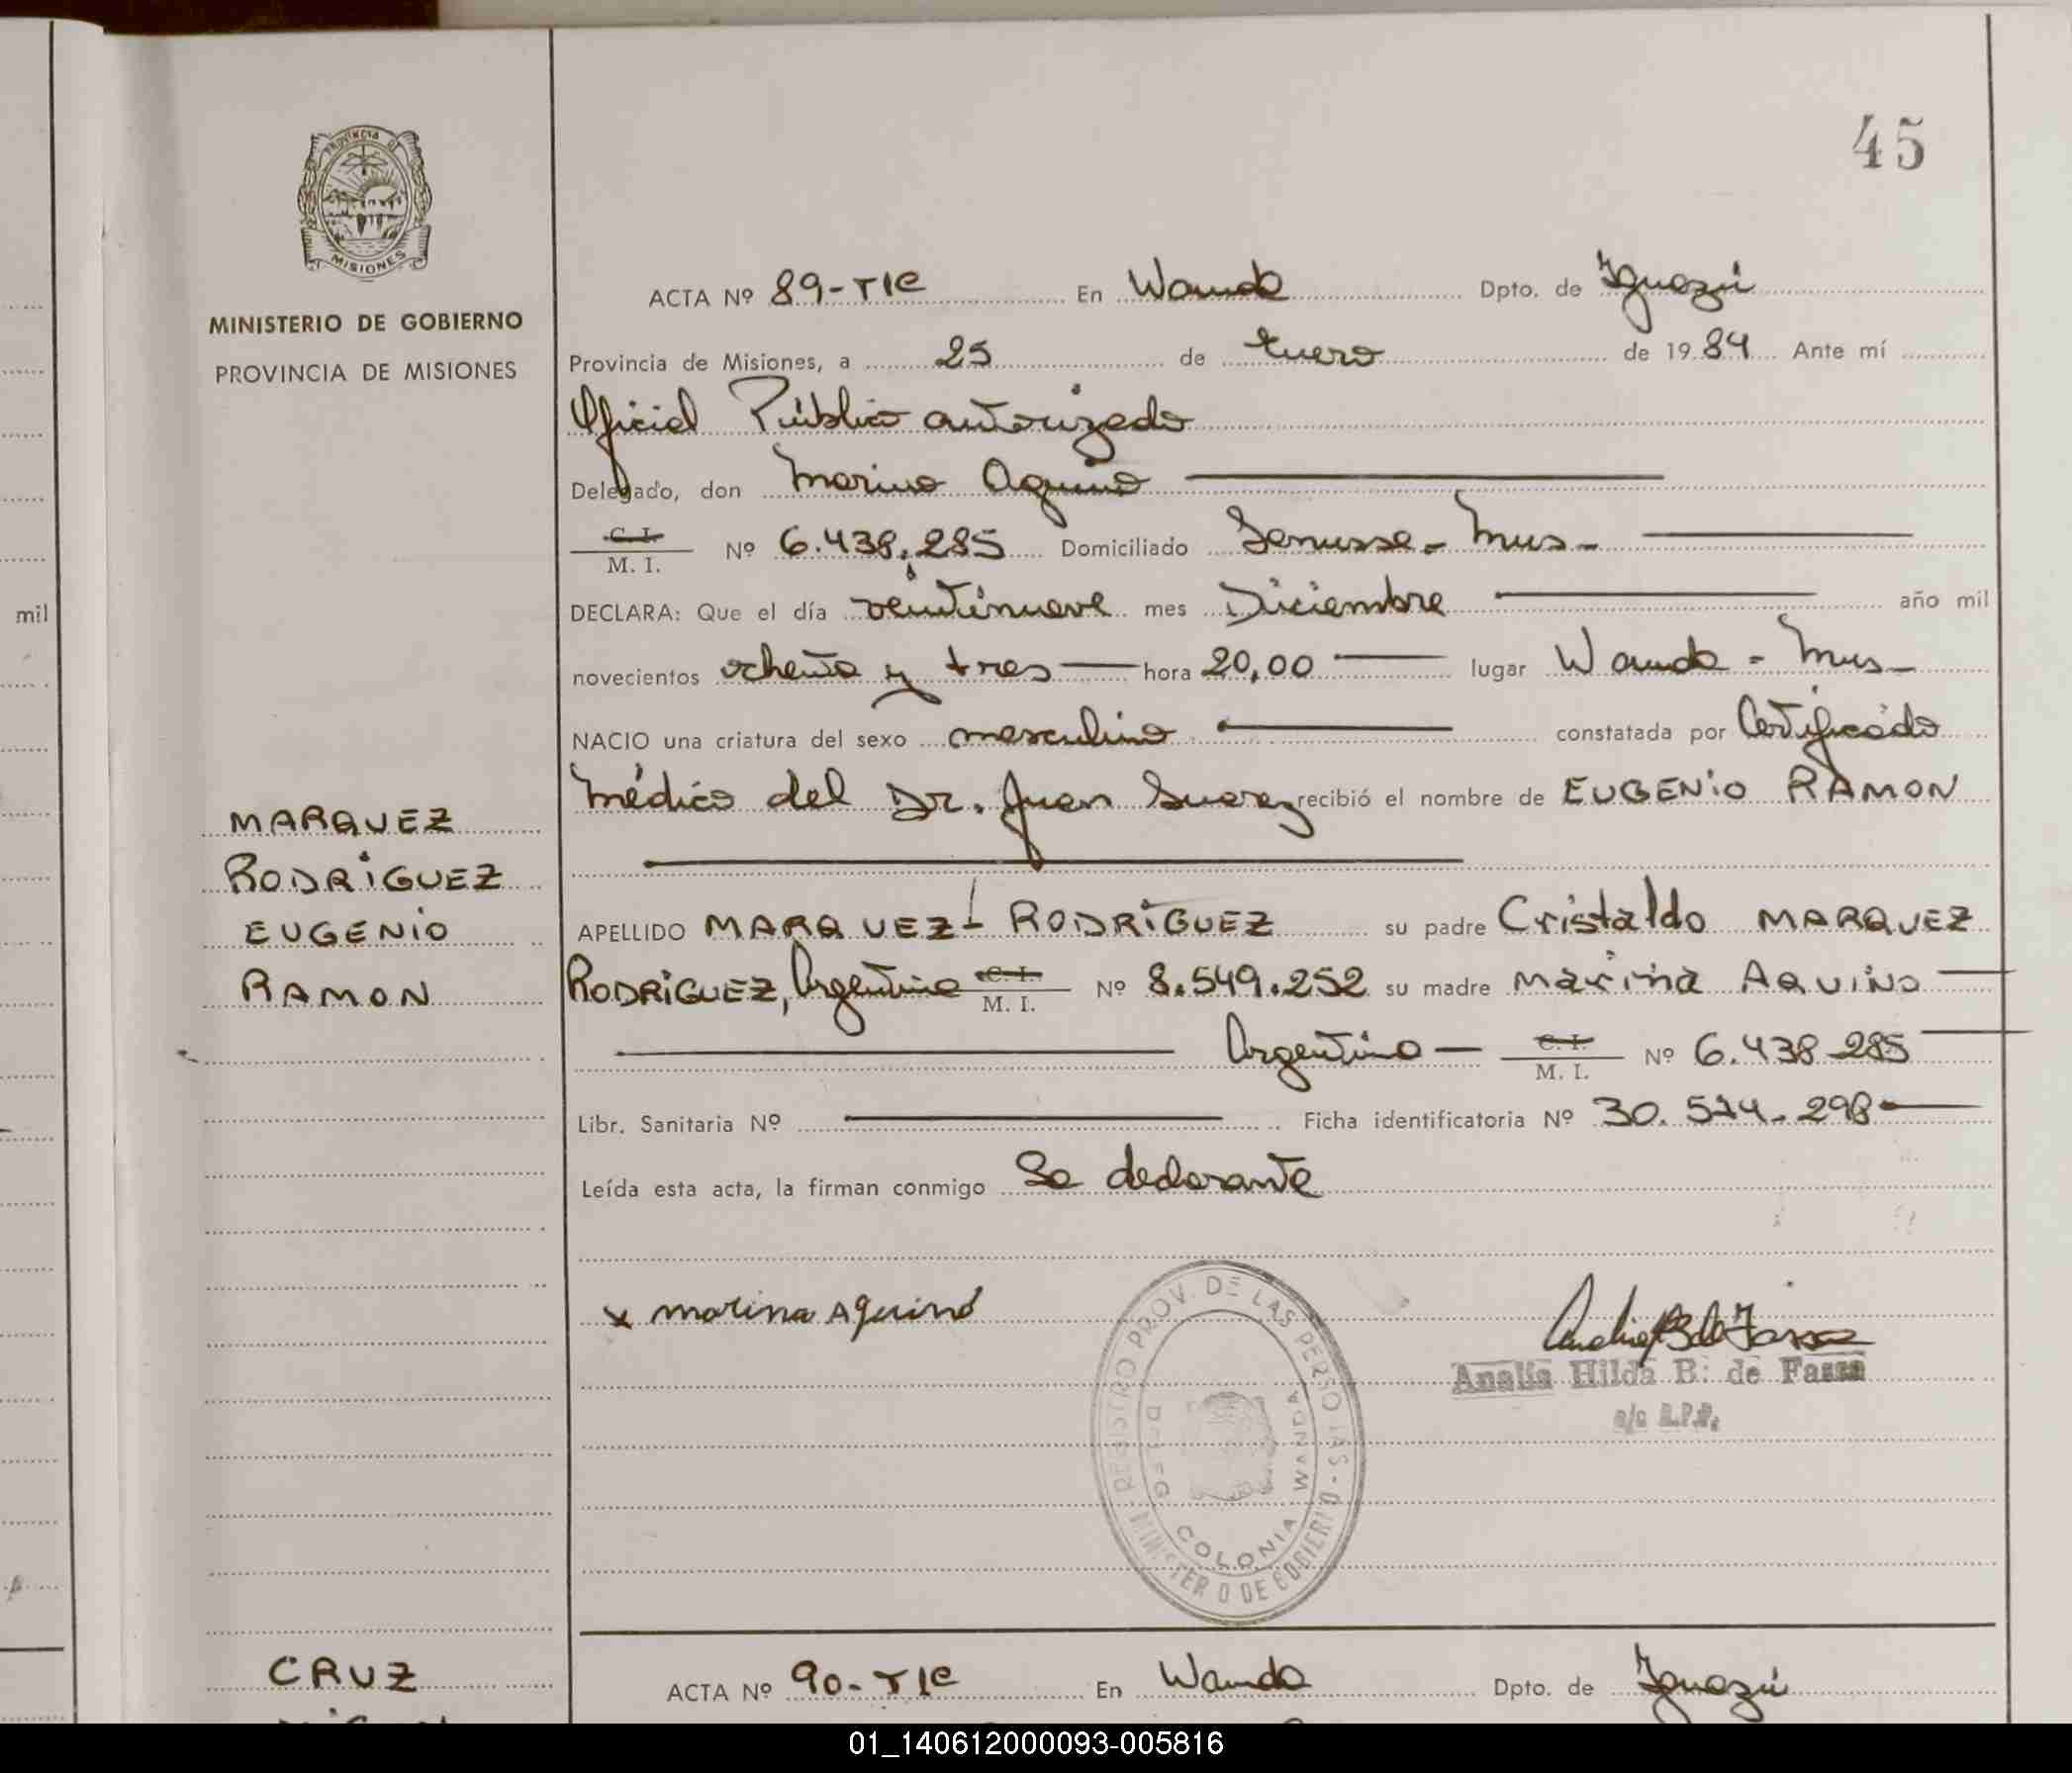 45
PROVINCIA DE
MISIONES
MINISTERIO DE GOBIERNO
PROVINCIA DE MISIONES
ACTA Nº 89-T1C En Wanda Dpto. de Iguazú
Provincia de Misiones, a 25 de Enero de 1984 Ante mí
Oficial Público autorizado
Delegado, don Marina Aquino
C. I.
M. I. Nº 6.438.285 Domiciliado Lanusse - Mns -
mil
DECLARA: Que el día veintinueve mes Diciembre año mil
novecientos ochenta y tres hora 20,00 lugar Wanda - Mns -
NACIO una criatura del sexo masculino constatada por Certificado
Médico del Dr. Juan Suarez recibió el nombre de EUGENIO RAMON
MARQUEZ
RODRIGUEZ
EUGENIO
RAMON
APELLIDO MARQUEZ - RODRIGUEZ su padre Cristaldo MARQUEZ
RODRIGUEZ, Argentino C. I. M. I. Nº 8.549.252 su madre Marina AQUINO
Argentina - C. I. M. I. Nº 6.438.285
Libr. Sanitaria Nº Ficha identificatoria Nº 30.574.298
Leída esta acta, la firman conmigo La declarante
x Marina Aquino
REGISTRO PROV. DE LAS PERSONAS - MINISTERIO DE GOBIERNO
COLONIA WANDA
Analia Hilda B. de Fassa
CRUZ
ACTA Nº 90-T1C En Wanda Dpto. de Iguazú
01_140612000093-005816